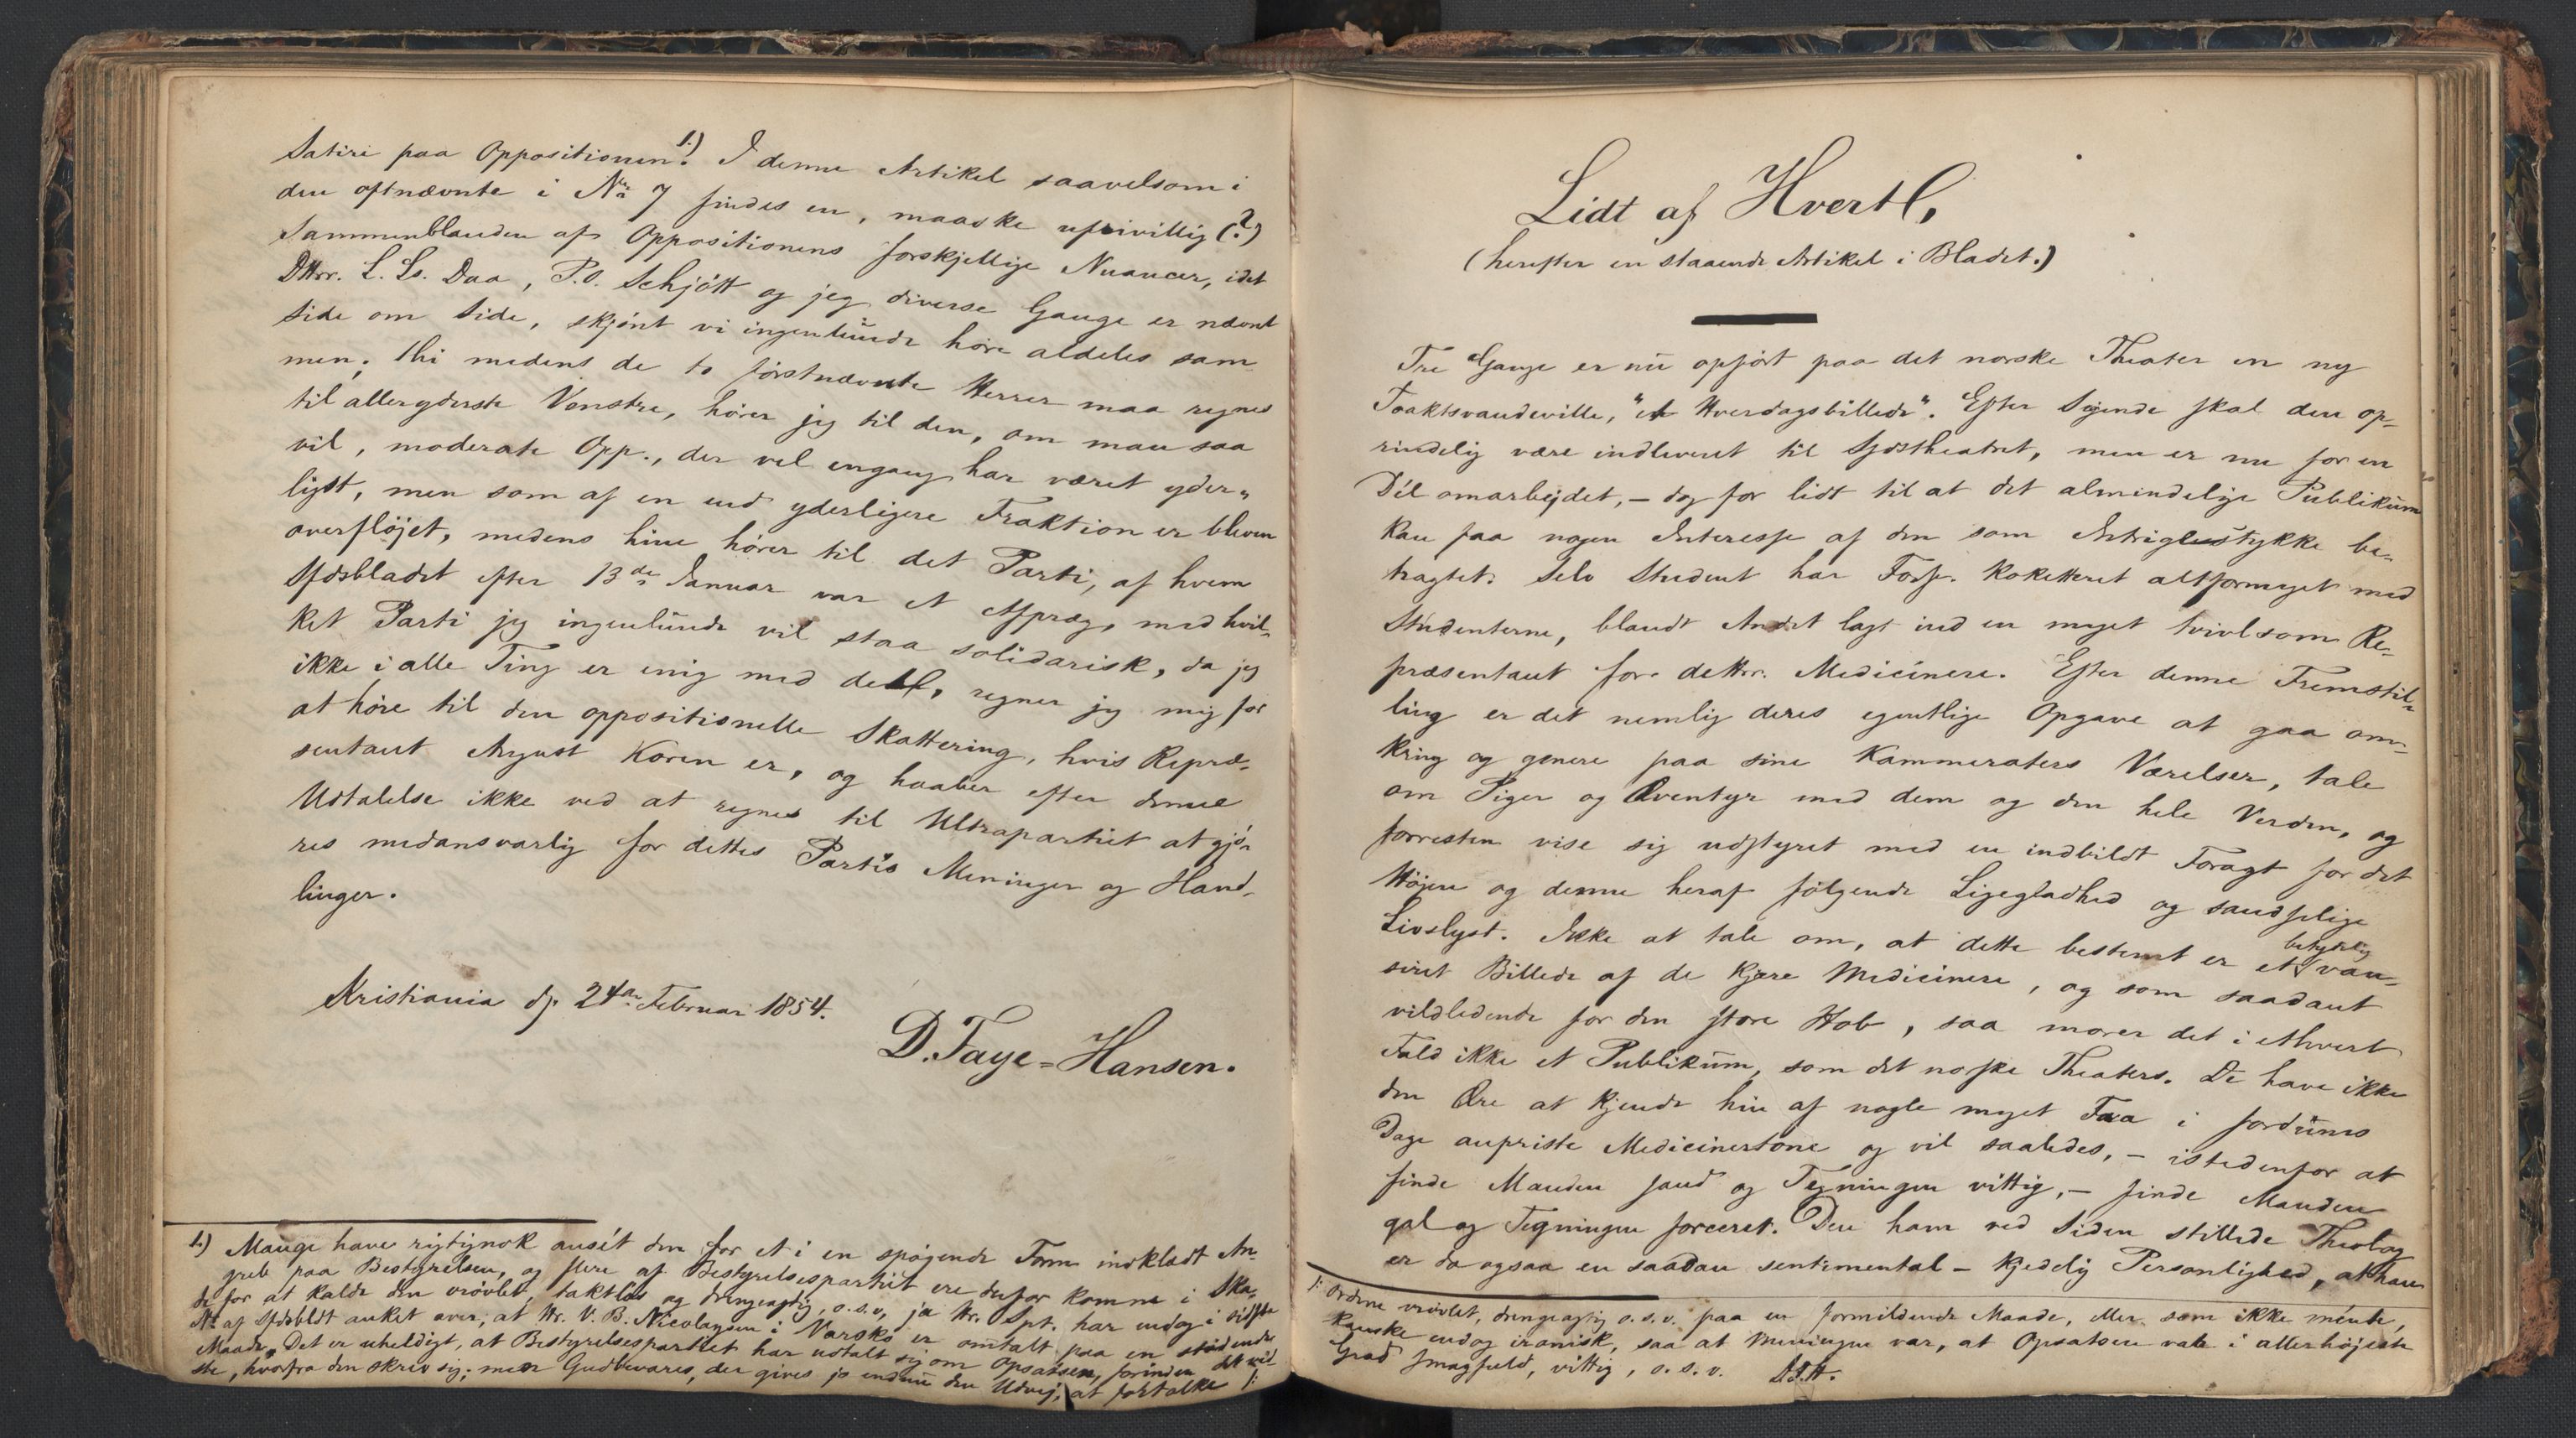 Satire paa Oppositionen.1.) I denne Artikel saavelsom i
den oftnævnte i Nr 7 findes en, maaske ufrivillig (?)
Sammenblanden af Oppositionens forskjellige Nuancer, idet
DHrr. L. Ls. Daa, P.O. Schjött og jeg diverse Gange er nævnt
Side om Side, skjönt vi ingenlunde höre aldeles sam
men; thi medens de to förstnævnte Herrer maa regnes
til alleryderste Venstre, hörer jeg til den, om man saa
vil, moderate Opp., der vel engang har været yder-
ligst, men som af en end yderligere Fraktion er bleven
overflöjet, medens hine hörer til det Parti, af hvem
Sfdsbladet efter 13de Januar var et Afpræg, med hvil-
ket Parti jeg ingenlunde vil staa solidarisk, da jeg
ikke i alle Ting er enig med det, regner jeg mig for
at höre til den oppositionelle Skattering, hvis Repræ-
sentant August Koren er, og haaber efter denne
Udtalelse ikke ved at regnes til Ultrapartiet at gjö-
res medansvarlig for dettes Partis Meninger og Hand-
linger.
Kristiania d. 24de Februar 1854.
D. Faye-Hansen.
1.) Mange have rigtignok anset den for et i en spögende Form indklædt An-
greb paa Bestyrelsen, og flere af Bestyrelsespartiet ere derfor komne i Ska-
de for at kalde den vrövlet, taktlös og drengeagtig, o.s.v., ja Hr. Spt. har endog i sidste
Nr af Sfdsbldt anket over, at Hr. V. B. Nicolaysen i Varsko er omtalt paa en stödende
Maade. Det er uheldigt, at Bestyrelsespartiet har udtalt sig om Opsatsen, förinden det vid-
ste, hvorfra den skrev sig; men Gudbevares, der gives jo endnu den Udvej, at fortolke /:
Lidt af Hvert,
(herefter en staaende Artikel i Bladet.)
Tre Gange er nu opfört paa det norske Theater en ny
Toaktsvaudeville, "et Hverdagsbillede". Efter Sigende skal den op-
rindelig være indleveret til Sfdstheatret, men er nu for en
Dèl omarbejdet, — dog for lidt til at det almindelige Publikum
kan faa nogen Interesse af den som Intriguestykke be-
tragtet. Selv Student har Forf. koketteret altformeget med
Studenterne, blandt Andet lagt ind en meget tvivlsom Re-
præsentant for dHrr. Medicinere. Efter denne Fremstil-
ling er det nemlig deres egentlige Opgave at gaa om-
kring og genere paa sine Kammeraters Værelser, tale
om Piger og Æventyr med dem og den hele Verden, og
forresten vise sig udstyret med en indbildt Foragt for det
Höjere og denne heraf fölgende Ligegladhed og sandselige
Livslyst. Ikke at tale om, at dette bestemt er et betydelig van-
siret Billede af de kjære Medicinere, og som saadant
vildledende for den store Hob, saa morer det i ethvert
Fald ikke et Publikum, som det norske Theaters. De have ikke
den Ære at kjende hin af nogle meget Faa i fordums
Dage anpriste Medicinertone og vil saaledes, — istedenfor at
finde Manden sand og Tegningen vittig, — finde Manden
gal og Tegningen forceret. Den ham ved Siden stillede Theolog
er da ogsaa en saadan sentimental-kjedelig Personlighed, at han
/: Ordene vrövlet, drengeagtig o.s.v. paa en formildende Maade, eller som ikke mente,
kanske endog ironisk, saa at Meningen var, at Opsatsen vale i allerhöjeste
Grad smagfuld, vittig, o.s.v.